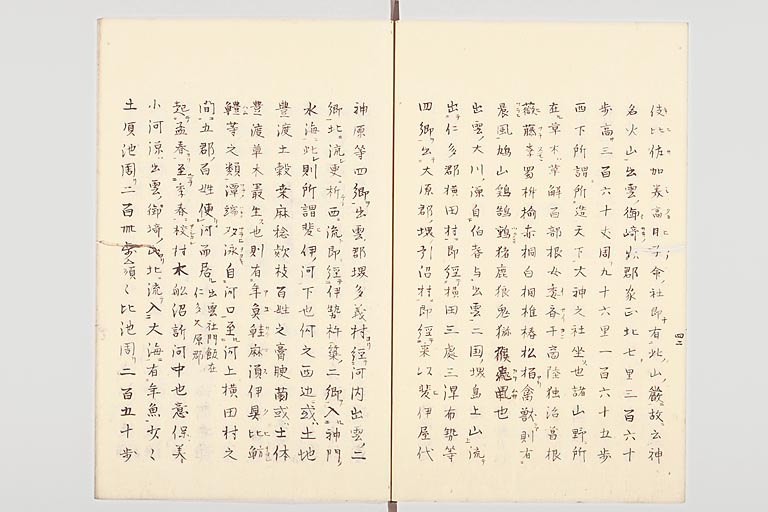 伎比佐加美高日子命社即有此山嶺故云神
名火山出雲御崎山郡家正北七里三百六十
歩高三百六十丈周九十六里一百六十五歩
西下所謂所造天下大神之社坐也諸山野所
在草木萆解百部根女委夜干高陸独活葛根
薇藤李蜀椒榆赤桐白桐椎椿松栢禽獣則有
晨風鳩山鶏鵠鶫猪鹿狼兎狐獼猴飛鼠也
出雲大川源自伯耆与出雲二国堺鳥上山流
出仁多郡横田村即経横田三處三澤布勢等
四郷出大原郡堺引沼村即経来以斐伊屋代
神原等四郷出雲郡堺多義村経河内出雲二
郷北流更折西流即経伊勢杵築二郷入神門
水海此則所謂斐伊河下也河之西辺或土地
豊渡土穀桒麻稔歟枝百姓之膏腴薗或土体
豊渡草木叢生也則有年魚鮭麻須伊具比魴
鱧等之類潭端双泳自河口至河上横田村之
間五郡百姓便河而居出雲社門飯在仁多大原郡
起孟春至季春校村木舩沼訴河中也意保美
小河源出雲御崎山北流入大海有年魚少々
土順池周二百卌歩須々比池周二百五十歩
四二